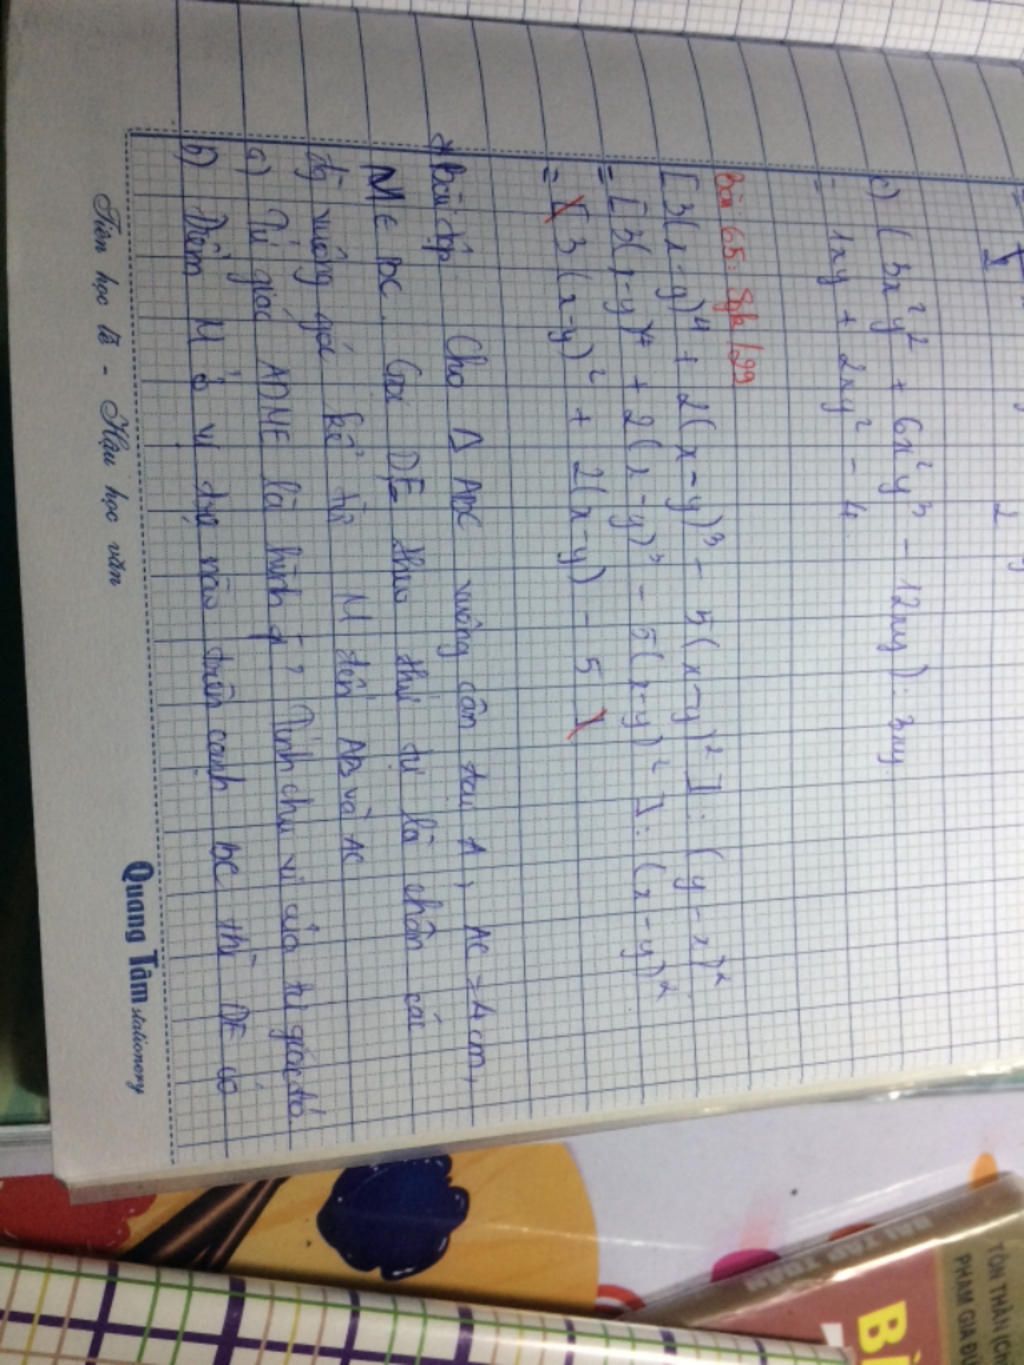 c) (3x²y² + 6x²y³ - 12xy) : 3xy
= 1xy + 2xy² - 4.
Bài 65: Sgk/29
[3(x-y)⁴ + 2(x-y)³ - 5(x-y)²] : (y-x)²
= [3(x-y)⁴ + 2(x-y)³ - 5(x-y)²] : (x-y)²
= [3(x-y)² + 2(x-y) - 5]
* Bài tập Cho Δ ABC vuông cân tại A, AC = 4cm,
M ∈ BC. Gọi D, E theo thứ tự là chân các
đg vuông góc kẻ từ M đến AB và AC
a) Tứ giác ADME là hình gì? Tính chu vi của tứ giác đó.
b) Điểm M ở vị trí nào trên cạnh BC thì DE có
Tiên học lễ - Hậu học văn
Quang Tâm stationery
BÀI TẬP TOÁN
TÔN THÂN (CH
PHẠM GIA Đ